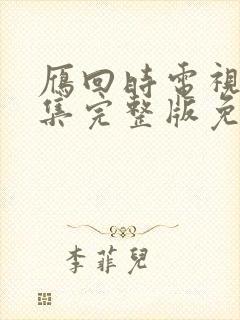 雁回時電視
集完整版免
李菲兒